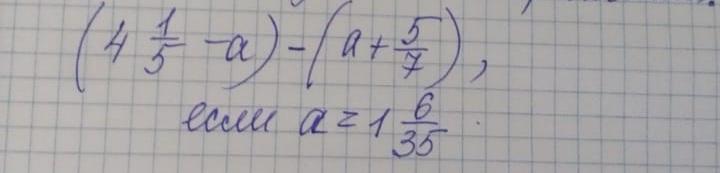 (4 1/5 - a) - (a + 5/7),
если a = 1 6/35.